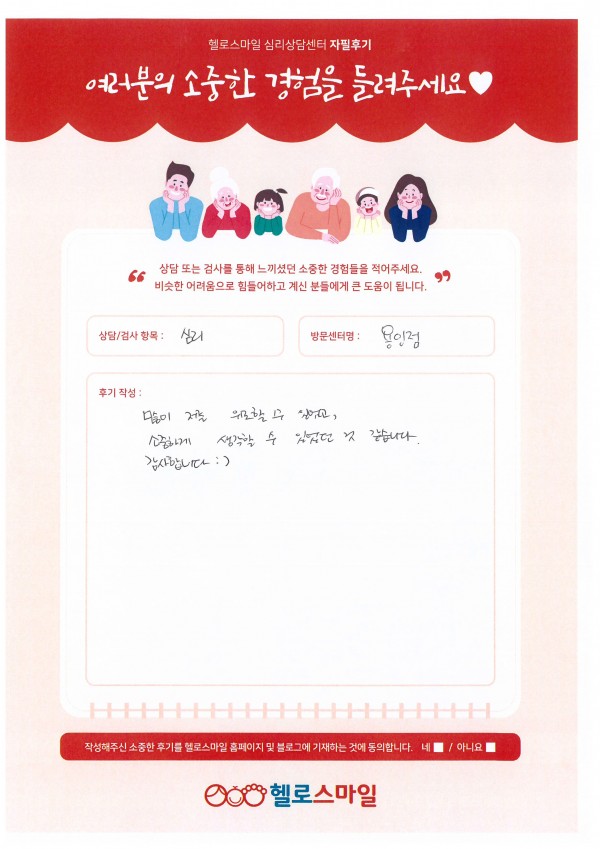 헬로스마일 심리상담센터 자필후기
여러분의 소중한 경험을 들려주세요♥
“ 상담 또는 검사를 통해 느끼셨던 소중한 경험들을 적어주세요.
비슷한 어려움으로 힘들어하고 계신 분들에게 큰 도움이 됩니다. ”
상담/검사 항목 : 심리
방문센터명 : 용인점
후기 작성 :
많이 저를 위로할 수 있었고,
소중하게 생각할 수 있었던 것 같습니다.
감사합니다 :)
작성해주신 소중한 후기를 헬로스마일 홈페이지 및 블로그에 기재하는 것에 동의합니다. 네 ■ / 아니요 ■
헬로스마일